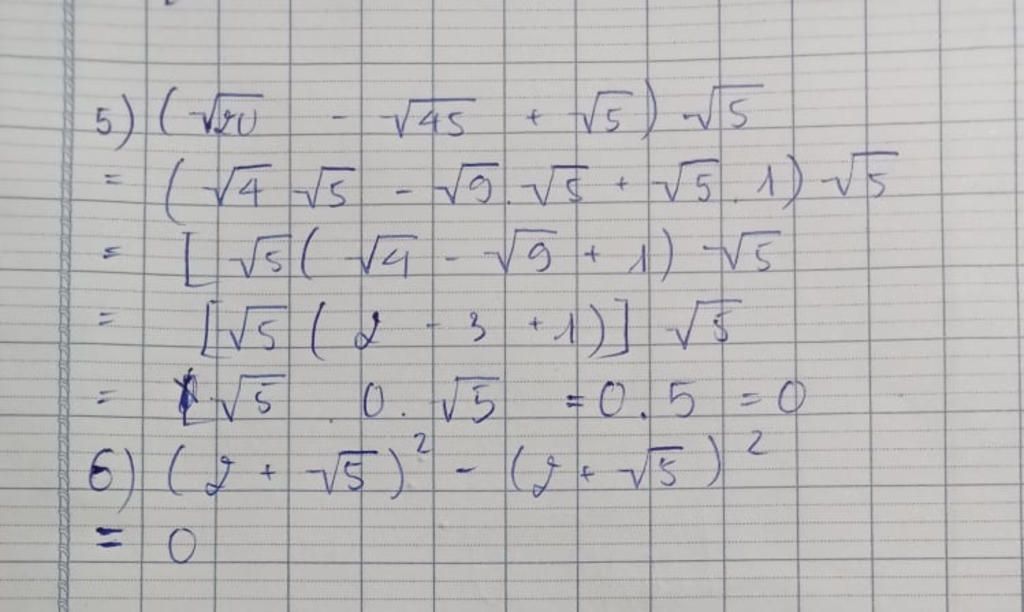 5) (√20 - √45 + √5) √5
= (√4 √5 - √9.√5 + √5.1) √5
= [√5(√4 - √9 + 1) √5
= [√5 (2 - 3 + 1)] √5
= √5 . 0. √5 = 0.5 = 0
6) (2 + √5)² - (2 + √5)²
= 0